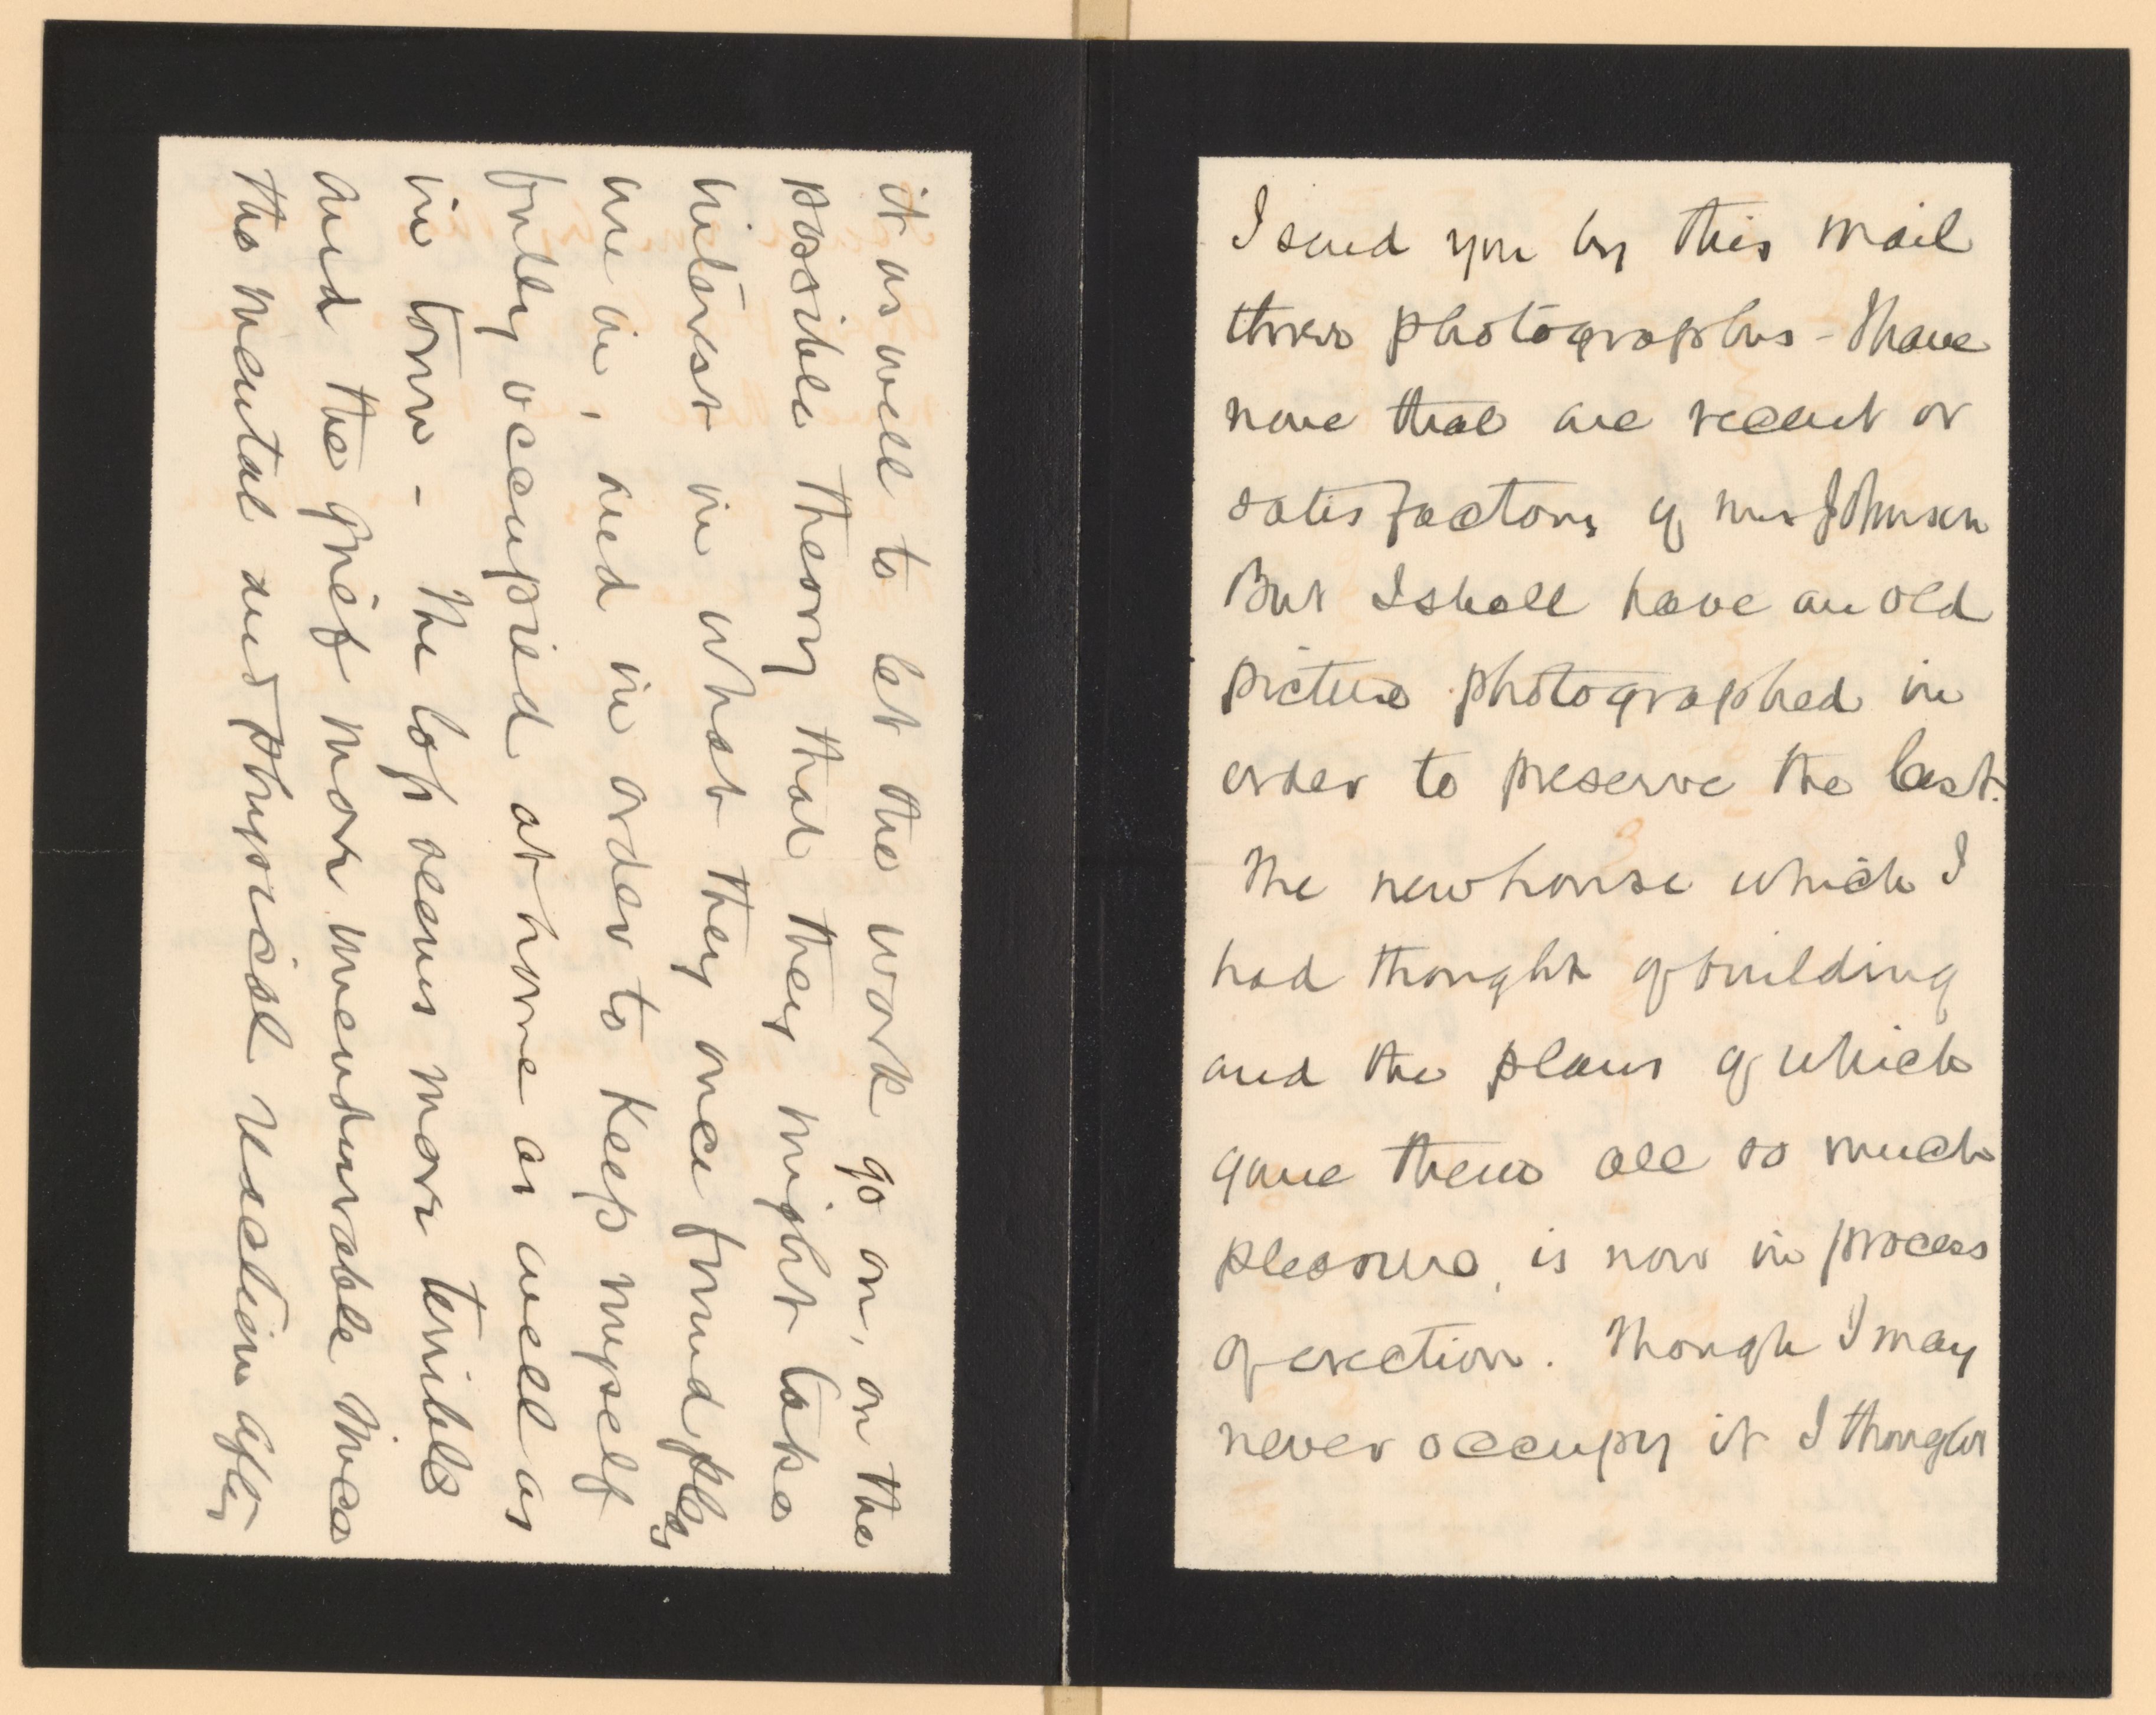 I send you by this mail
three photographs - I have
none that are recent or
satisfactory of Mrs Johnson
But I shall have an old
picture photographed in
order to preserve the last.
The new house which I
had thought of building
and the plans of which
gave them all so much
pleasure, is now in process
of erection. Though I may
never occupy it I thought
it as well to let the work go on, on the
possible theory that they might take
interest in what they once found pleas
ure in, and in order to keep myself
fully occupied at home as well as
in town - The loss seems more terrible
and the grief more unendurable since
the mental and physical reaction after